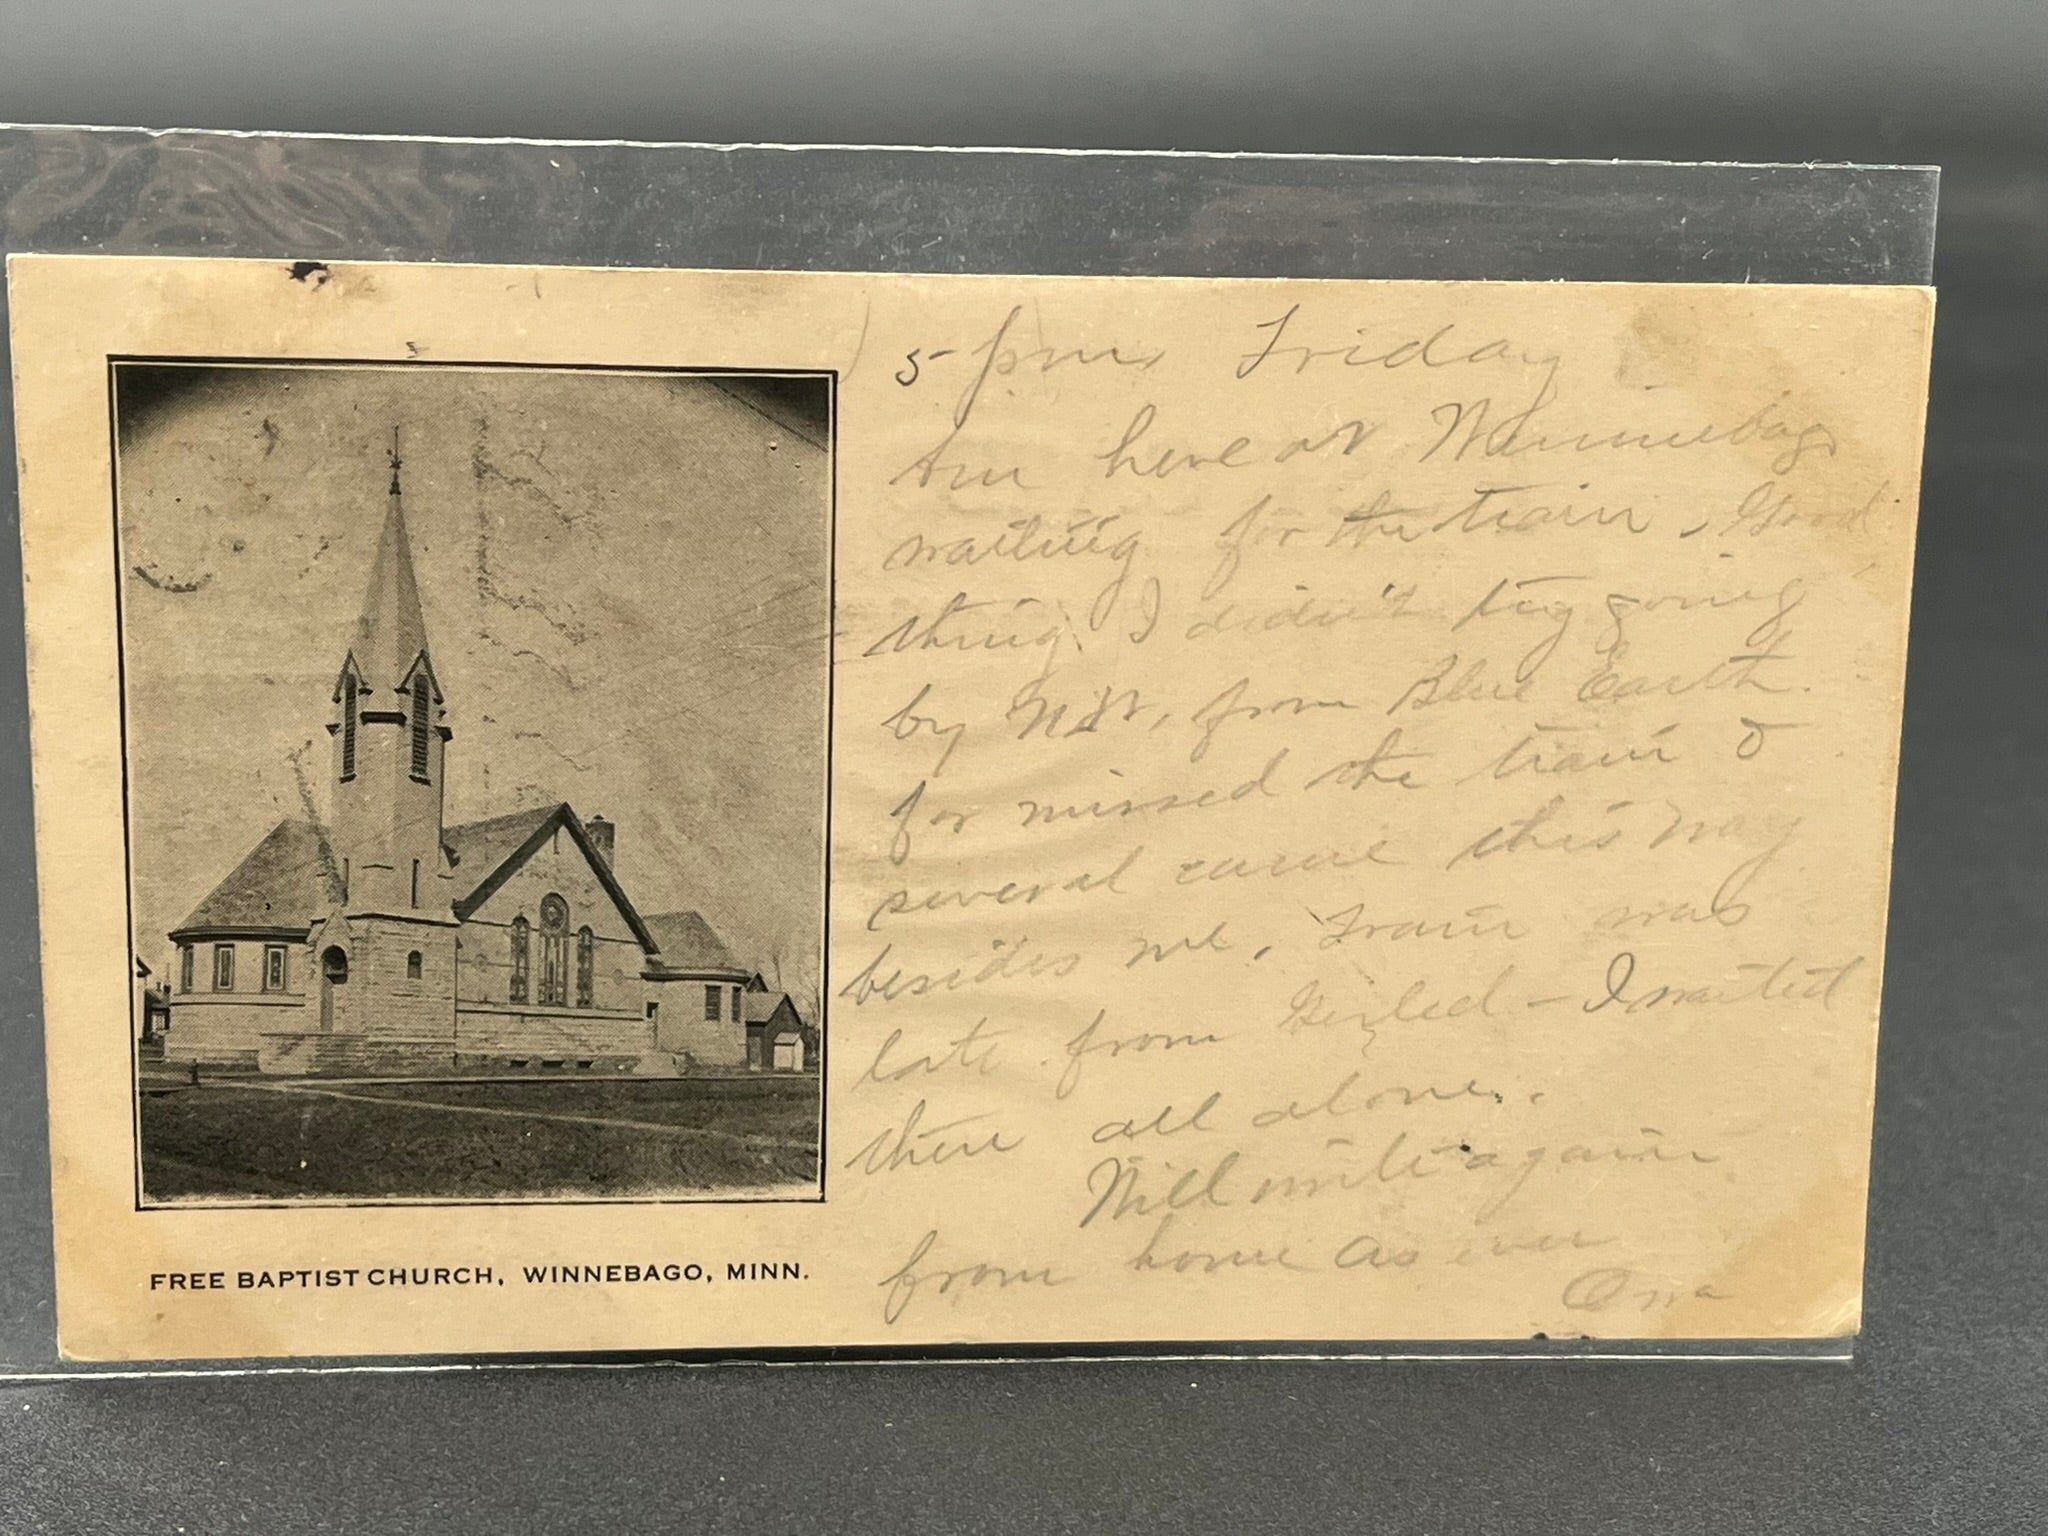 5 pm. Friday
Am here at Winnebago
waiting for the train. Good
thing I didn't try going
by from Blue Earth.
for missed the train &
several came this way
besides me. Train was
late from - I waited
there all alone.
Will write again
from home as ever
FREE BAPTIST CHURCH, WINNEBAGO, MINN.